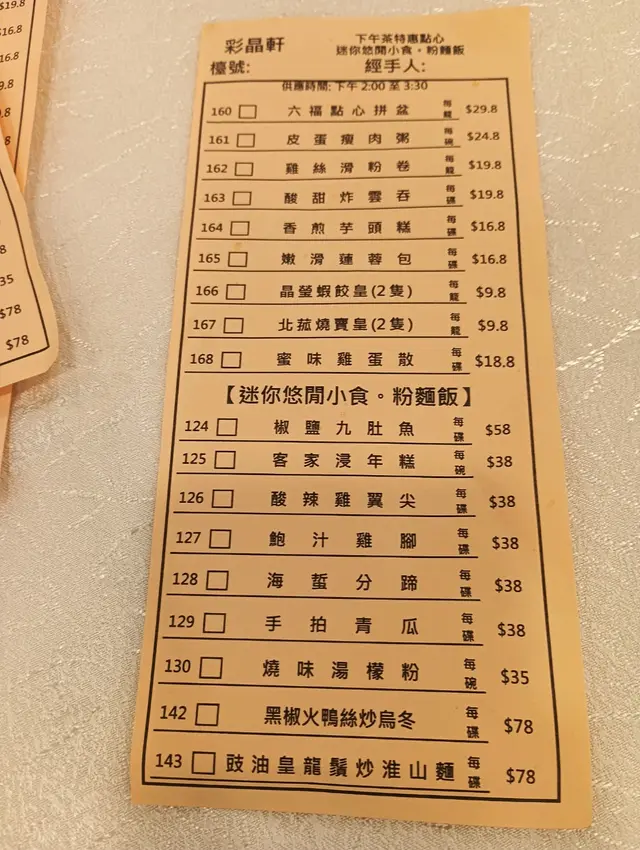 $19.8
16.8
16.8
9.8
9.8
8.8
8
35
$78
$78
彩晶軒
下午茶特惠點心
迷你悠閒小食。粉麵飯
檯號: 經手人:
供應時間: 下午 2:00 至 3:30
160 六福點心拼盆 每籠 $29.8
161 皮蛋瘦肉粥 每碗 $24.8
162 雞絲滑粉卷 每籠 $19.8
163 酸甜炸雲吞 每碟 $19.8
164 香煎芋頭糕 每碟 $16.8
165 嫩滑蓮蓉包 每碟 $16.8
166 晶瑩蝦餃皇(2隻) 每籠 $9.8
167 北菰燒賣皇(2隻) 每籠 $9.8
168 蜜味雞蛋散 每碟 $18.8
【迷你悠閒小食。粉麵飯】
124 椒鹽九肚魚 每碟 $58
125 客家浸年糕 每碗 $38
126 酸辣雞翼尖 每碟 $38
127 鮑汁雞腳 每碟 $38
128 海蜇分蹄 每碟 $38
129 手拍青瓜 每碟 $38
130 燒味湯檬粉 每碗 $35
142 黑椒火鴨絲炒烏冬 每碟 $78
143 豉油皇龍鬚炒淮山麵 每碟 $78